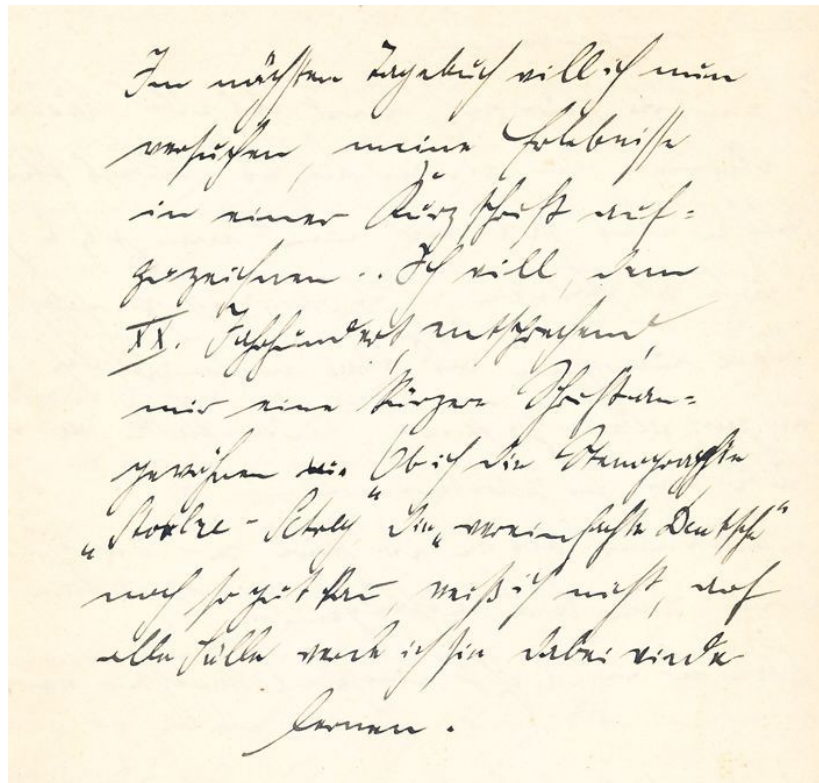 Im nächsten Tagebuch will ich nun
versuchen, meine Erlebnisse
in einer Kurzschrift auf-
zuzeichnen.. Ich will, dem
XX. Jahrhundert, entsprechend,
mir eine kürzere Schrift an-
gewöhnen Ob ich die Stenographie
„Stolze-Schrey" die „vereinfachte Deutsche"
noch so gut kan̅, weiß ich nicht, auf
alle Fälle werde ich sie dabei wieder
lernen.